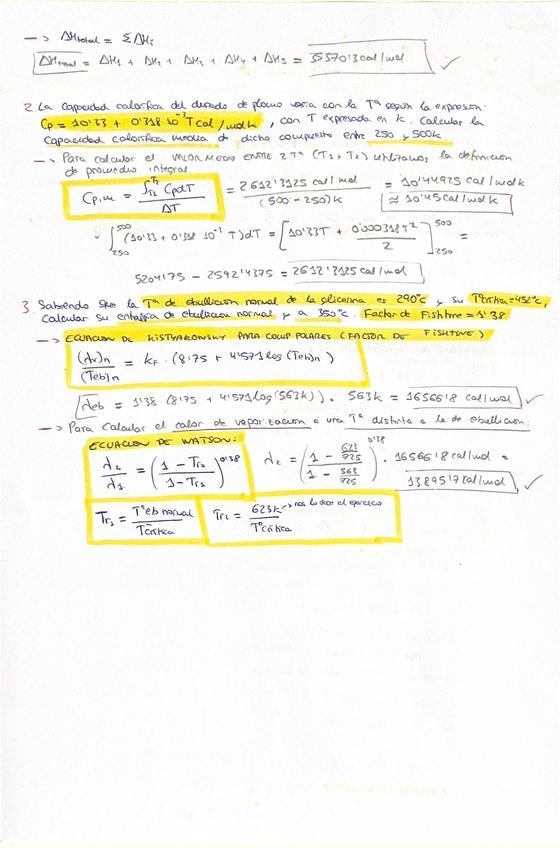 —> ΔHtotal = ΣΔHi
ΔHtotal = ΔH1 + ΔH2 + ΔH3 + ΔH4 + ΔH5 = 35570'3 cal/mol ✓
2. La capacidad calorífica del clorudo de plomo varía con la Tª según la expresión:
Cp = 10'33 + 0'318·10⁻³ T cal/molk, con T expresada en K. Calcular la
capacidad calorífica media de dicho compuesto entre 250 y 500k
—> Para calcular el VALOR MEDIO ENTRE 2 Tª (T1 y T2) utilizamos la definición
de promedio integral
Cp,m = ∫ CpdT / ΔT = 2612'3125 cal/mol / (500-250)k = 10'44925 cal/molk
≈ 10'45 cal/molk
· ∫₂₅₀⁵⁰⁰ (10'33 + 0'318·10⁻³ T)dT = [10'33T + 0'000318T² / 2]₂₅₀⁵⁰⁰ =
5204'75 - 2592'4375 = 2612'3125 cal/mol
3. Sabiendo que la Tª de ebullición normal de la glicerina es 290ºc y su Tªcrítica = 452ºc,
Calcular su entalpía de ebullición normal y a 350ºc. Factor de Fishtine = 1'38
—> ECUACIÓN DE KISTYAKOWSKY PARA COMP POLARES (FACTOR DE FISHTINE)
(λv)n / (Teb)n = KF · (8'75 + 4'571 log (Teb)n)
λeb = 1'38 (8'75 + 4'571 log (563k)) · 563k = 16566'8 cal/mol ✓
—> Para calcular el calor de vaporización a una Tª distinta a la de ebullición:
ECUACIÓN DE WATSON:
λ2 / λ1 = (1 - Tr2 / 1 - Tr1)^0'38
λ2 = (1 - 623/725 / 1 - 563/725)^0'38 · 16566'8 cal/mol =
13895'7 cal/mol ✓
Tr1 = Tªeb normal / Tªcrítica
Tr2 = 623k / Tªcrítica -> nos lo dice el ejercicio